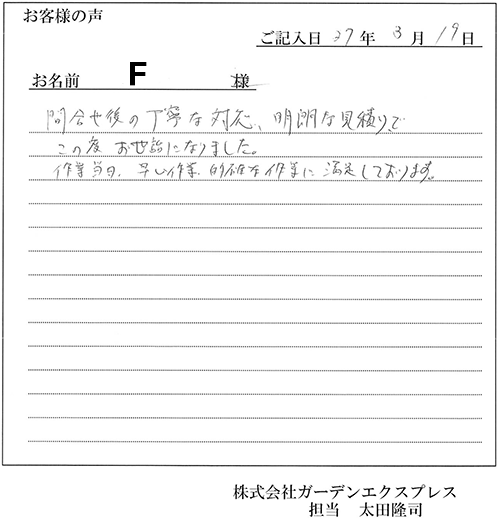 お客様の声
ご記入日 27年 3月 19日
お名前 F 様
問合せ後の丁寧な対応、明朗な見積りで
この度 お世話になりました。
作業当日、早い作業、的確な作業に 満足しております。
株式会社ガーデンエクスプレス
担当 太田隆司